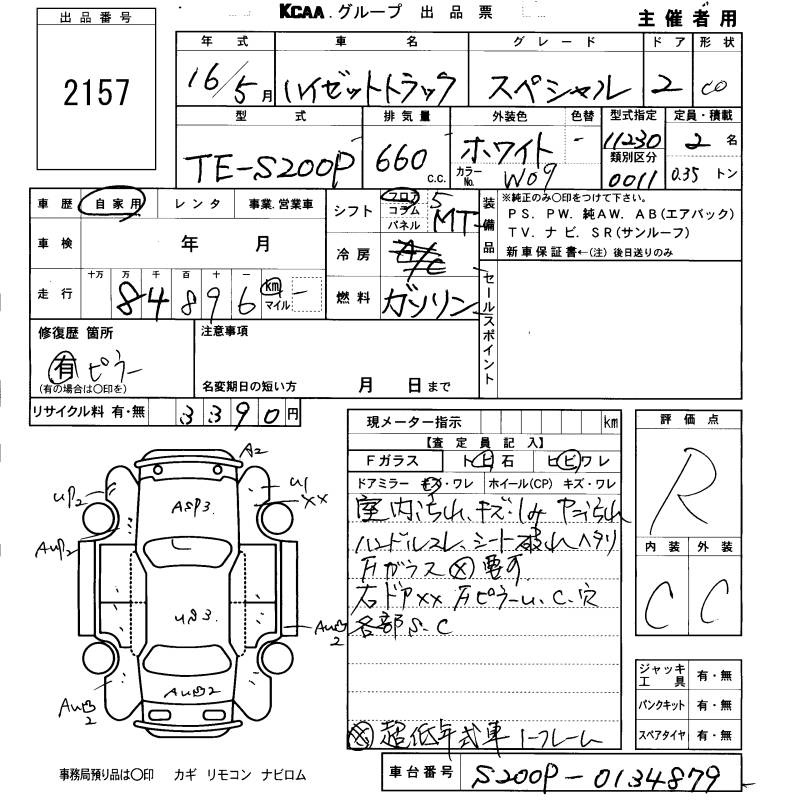 KCAA.グループ 出品票
主催者用
出品番号
2157
年式 車名 グレード ドア 形状
16/5月 ハイゼットトラック スペシャル 2 CO
型式 排気量 外装色 色替 型式指定 定員・積載
TE-S200P 660 c.c. ホワイト - 11230 2名
カラーNo. W09 類別区分 0011 0.35トン
車歴 自家用 レンタ 事業.営業車
シフト フロア コラム パネル 5 MT
装備品
※純正のみ○印をつけて下さい。
PS. PW. 純AW. AB(エアバック)
TV. ナビ. SR(サンルーフ)
新車保証書←(注) 後日送りのみ
車検 年 月
冷房 A/C
走行 十万 万 千 百 十 一
84896 km マイル -
燃料 ガソリン
セールスポイント
修復歴 箇所
有 ピラー
(有の場合は○印を)
注意事項
名変期日の短い方 月 日まで
リサイクル料 有・無 3390円
現メーター指示 km
【査定員記入】
Fガラス トビ石 ヒビワレ
ドアミラー キズ・ワレ ホイール(CP) キズ・ワレ
室内汚れ、キズ・しみ ヤニ汚れ
ハンドルスレ、シート破れヘタリ
Fガラス ⊗ 要可
右ドアXX FピラーU、C、穴
各部S.C
⊗ 超低年式車 トフレーム
評価点
R
内装 外装
C C
A2
UP2
U1
XX
ASP3
AUP2
US3
AU凹2
AU凹2
AU凹2
ジャッキ工具 有・無
パンクキット 有・無
スペアタイヤ 有・無
事務局預り品は○印 カギ リモコン ナビロム
車台番号 S200P-0134879